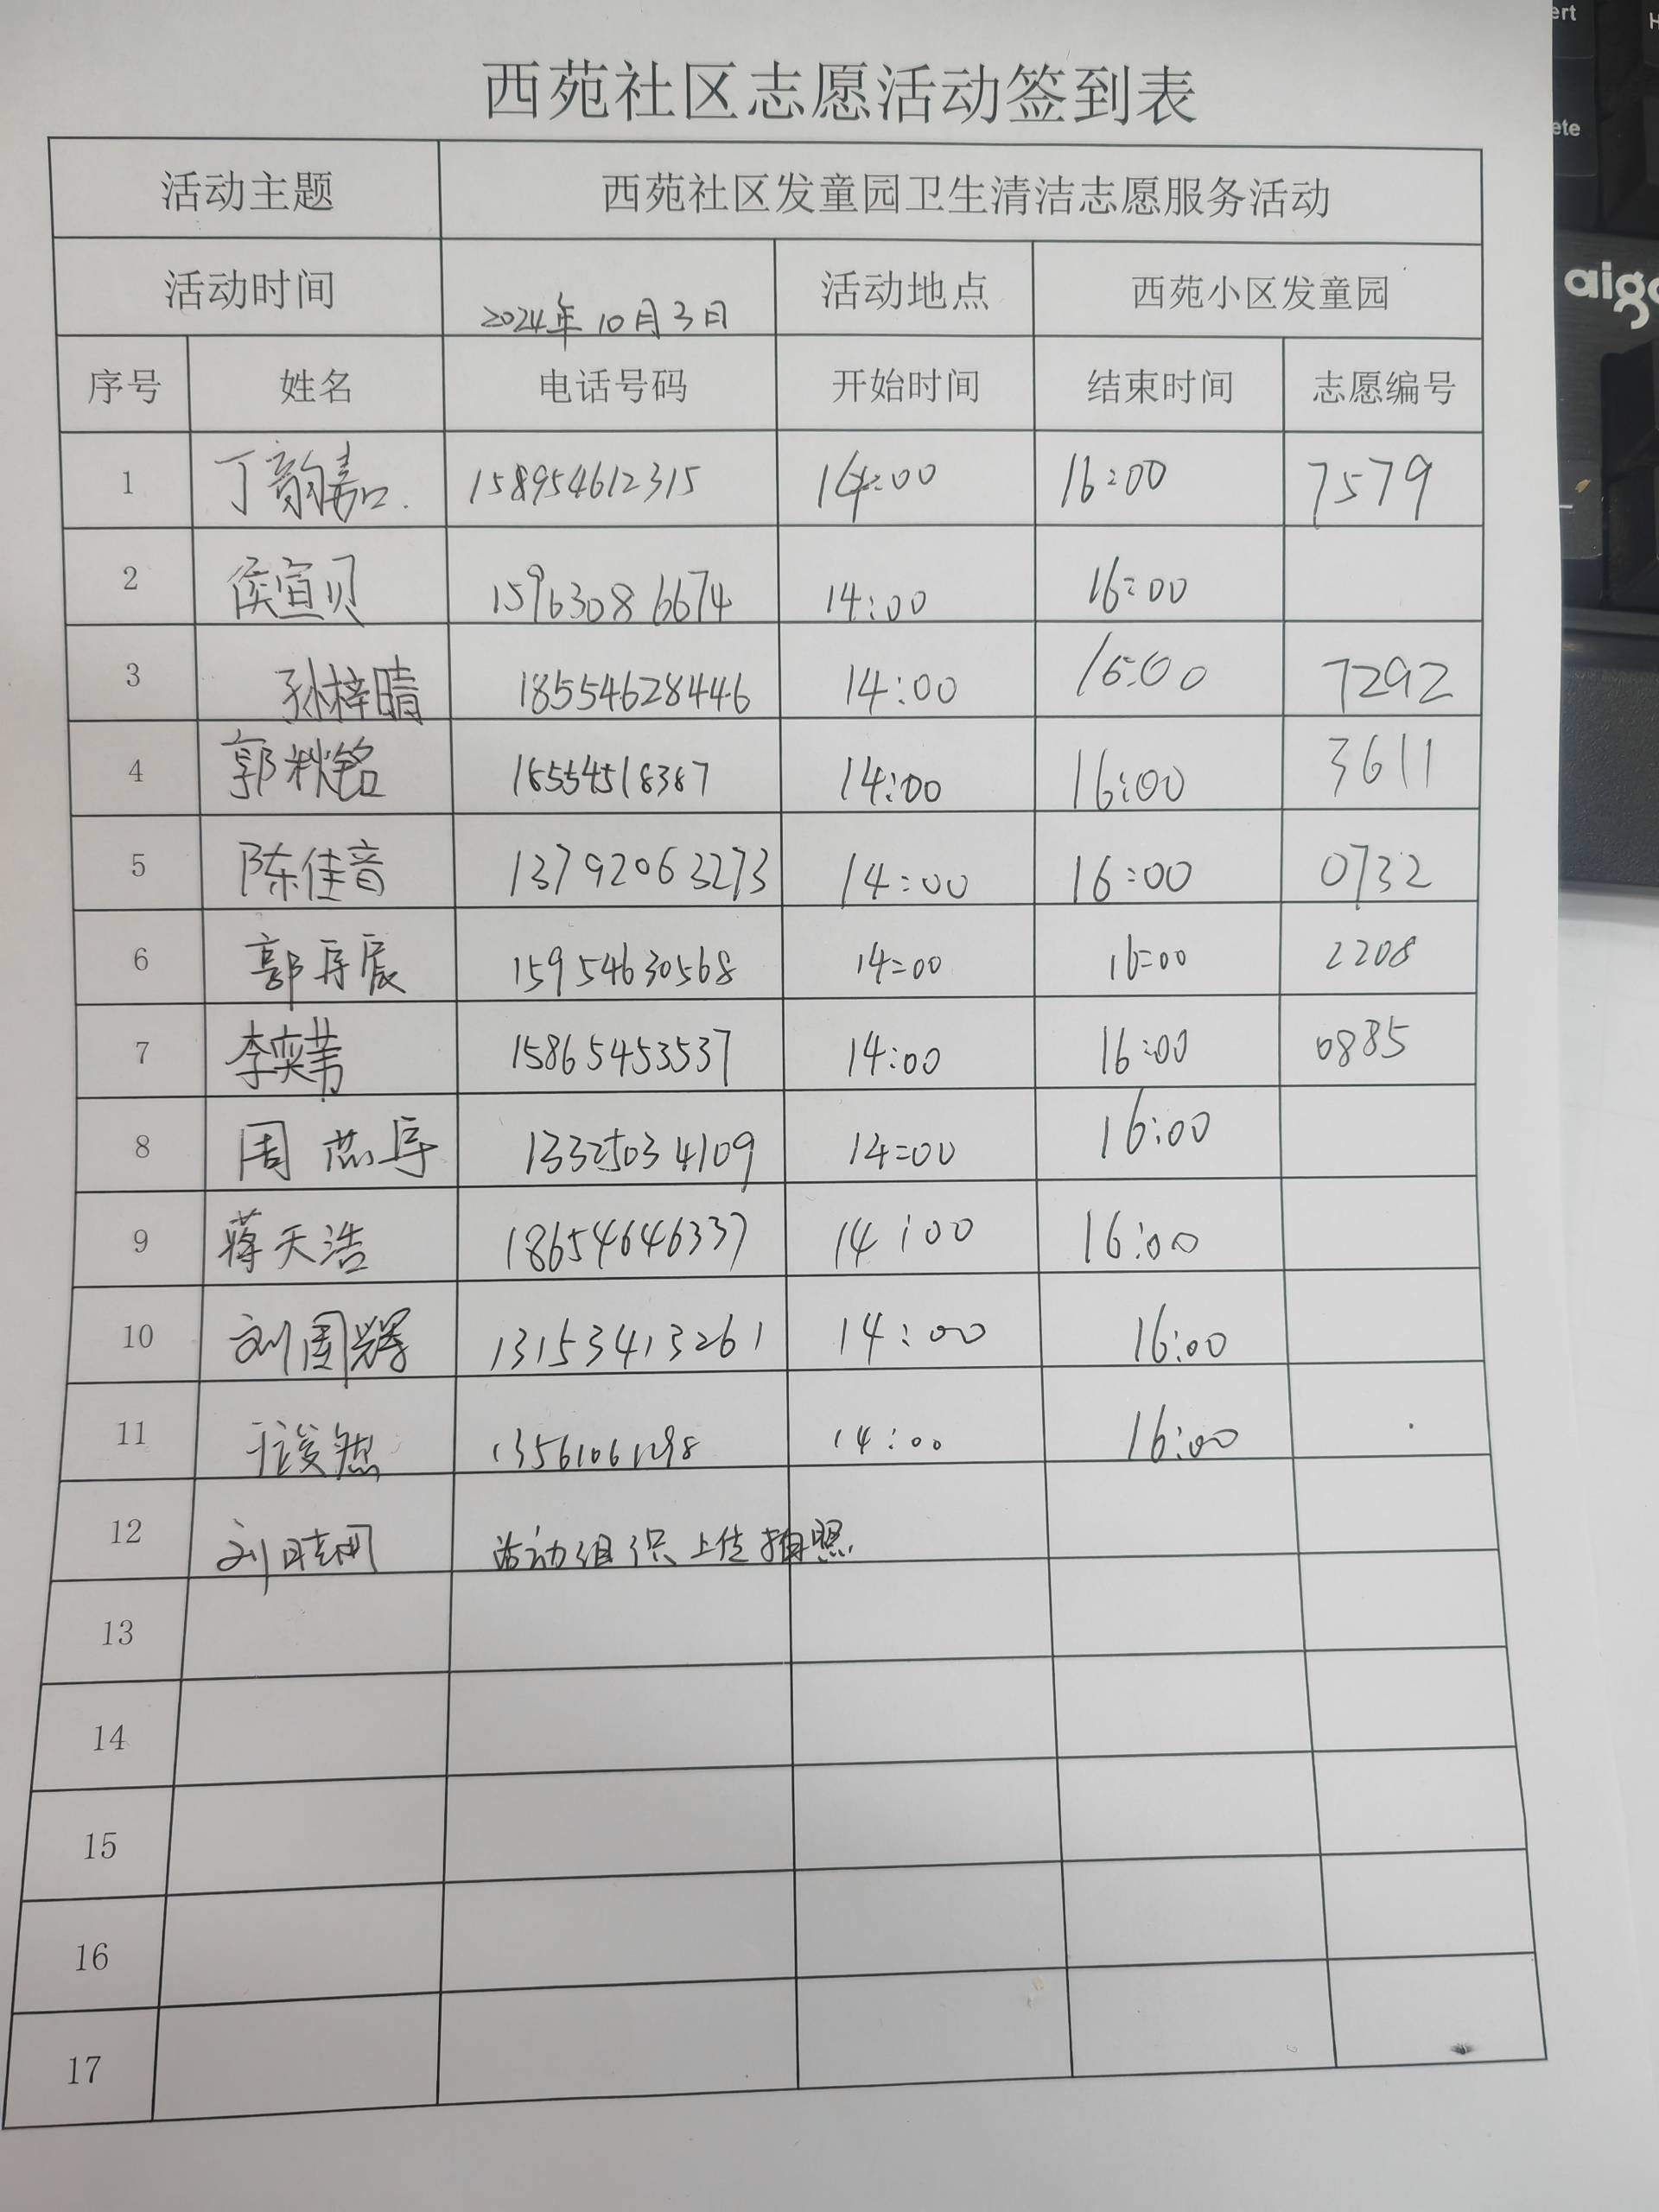 西苑社区志愿活动签到表
活动主题 西苑社区发童园卫生清洁志愿服务活动
活动时间 2024年10月3日 活动地点 西苑小区发童园
序号 姓名 电话号码 开始时间 结束时间 志愿编号
1 丁韵嘉 158954612315 14:00 16:00 7579
2 侯宣贝 15963086674 14:00 16:00
3 孙梓晴 18554628446 14:00 16:00 7292
4 郭秋铭 18554518387 14:00 16:00 3611
5 陈佳音 13792063273 14:00 16:00 0732
6 郭辰 15954630568 14:00 16:00 2208
7 李奕 15865453537 14:00 16:00 0885
8 周 13325034109 14:00 16:00
9 蒋天浩 18654646337 14:00 16:00
10 刘周 13153413261 14:00 16:00
11 然 13561061298 14:00 16:00
12 刘晓 活动组织上传拍照
13
14
15
16
17
aigo
ert
ete